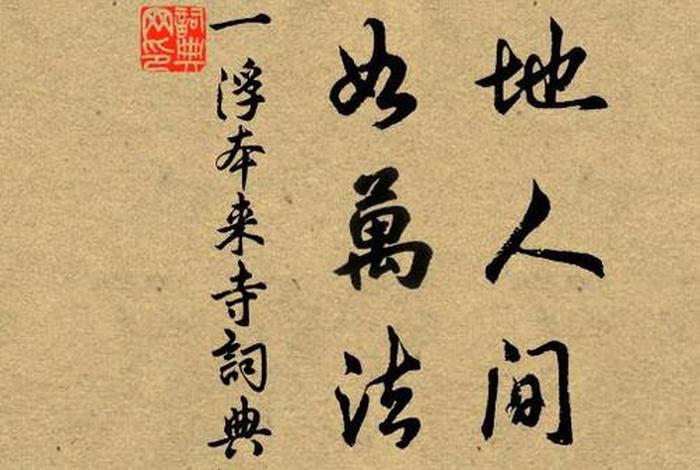 地人间
如萬法
一浮本来寺詞典
詞典網印